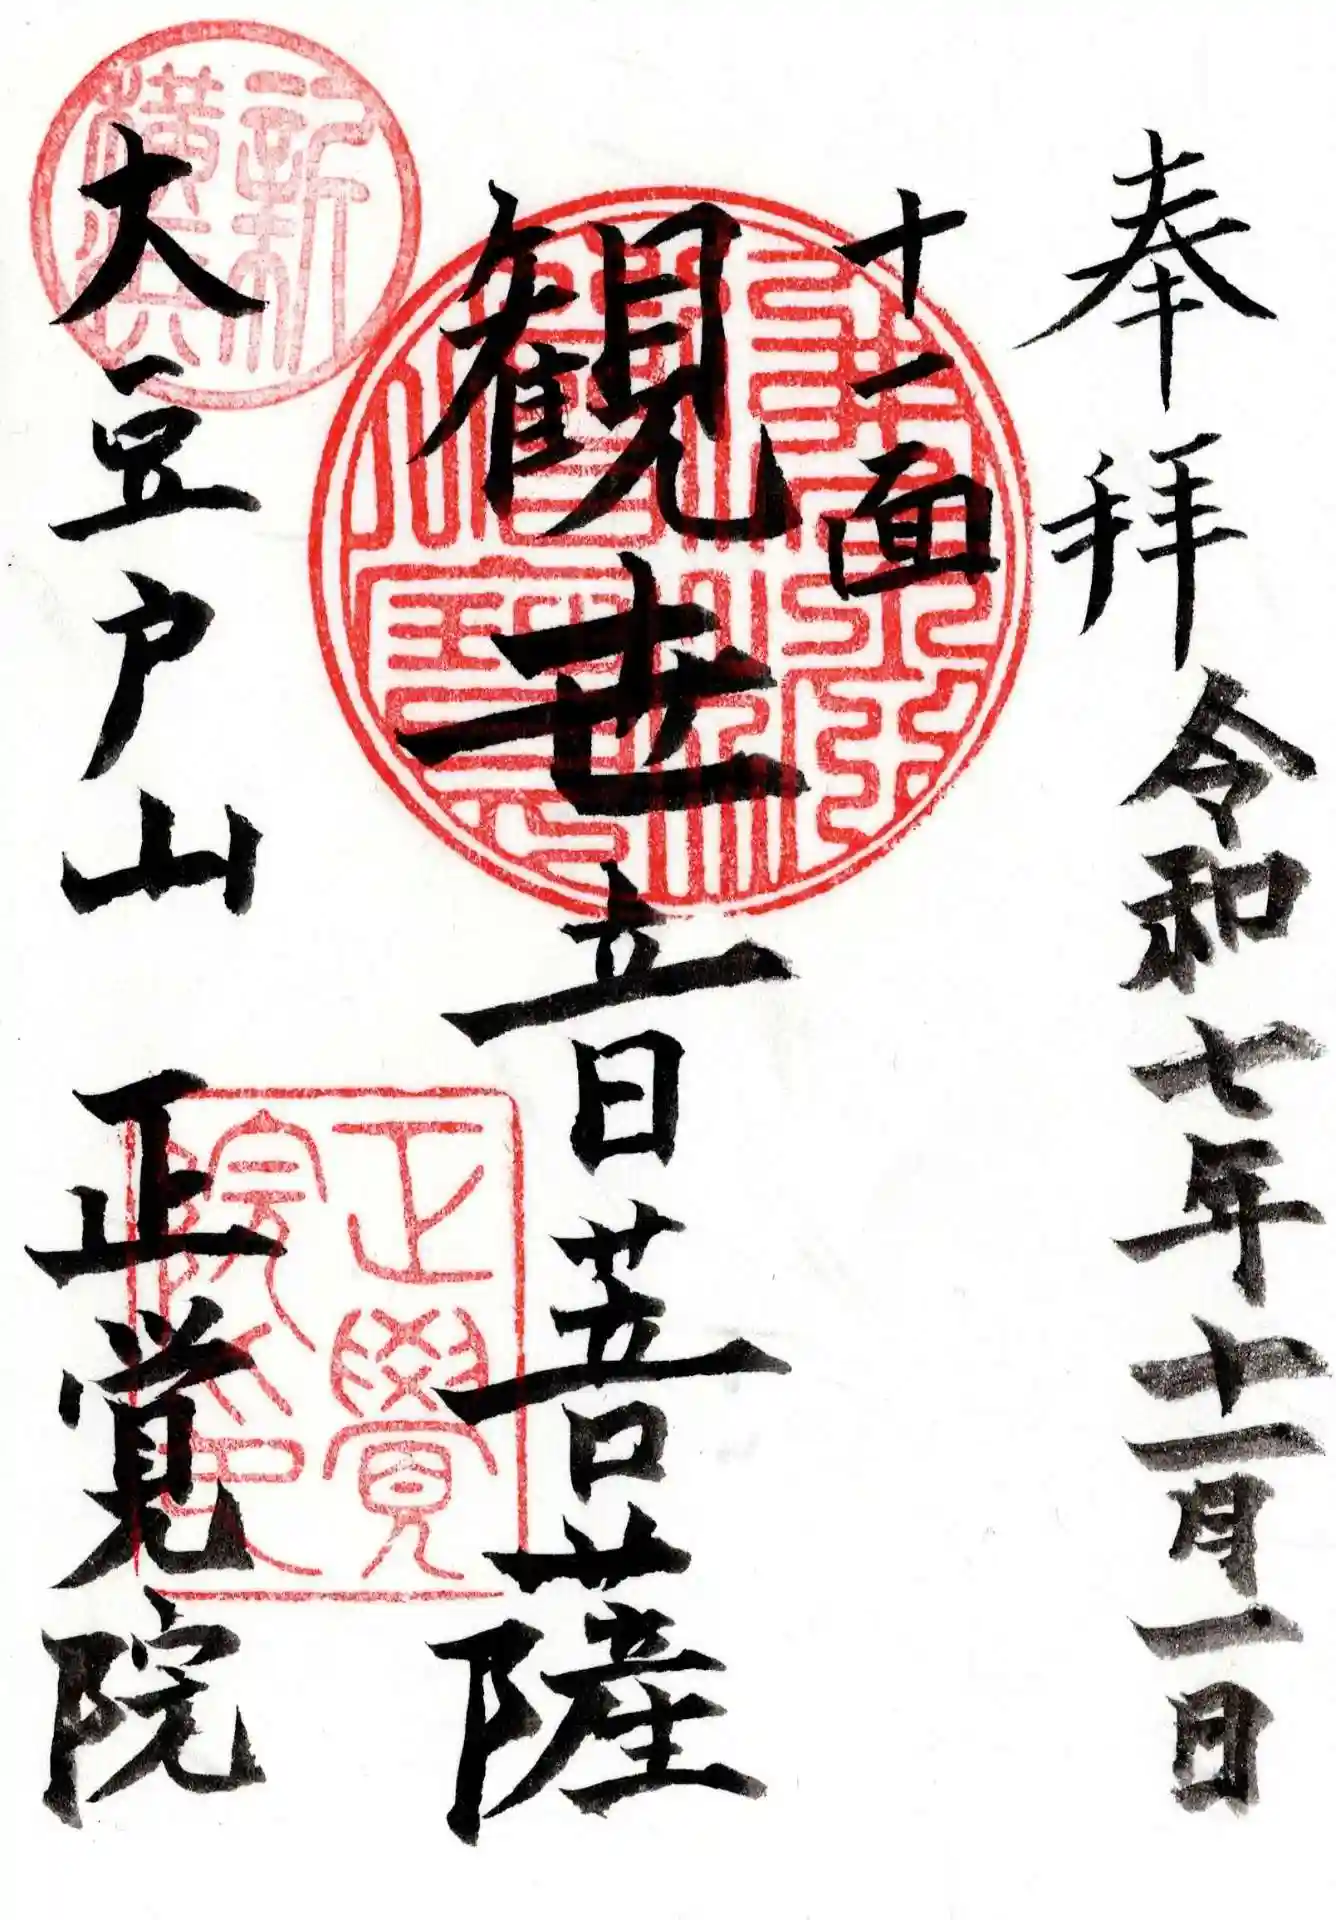 奉拝
令和七年十一月一日
十一面
観世音菩薩
大豆戸山 正覚院
新横浜
正覺院印